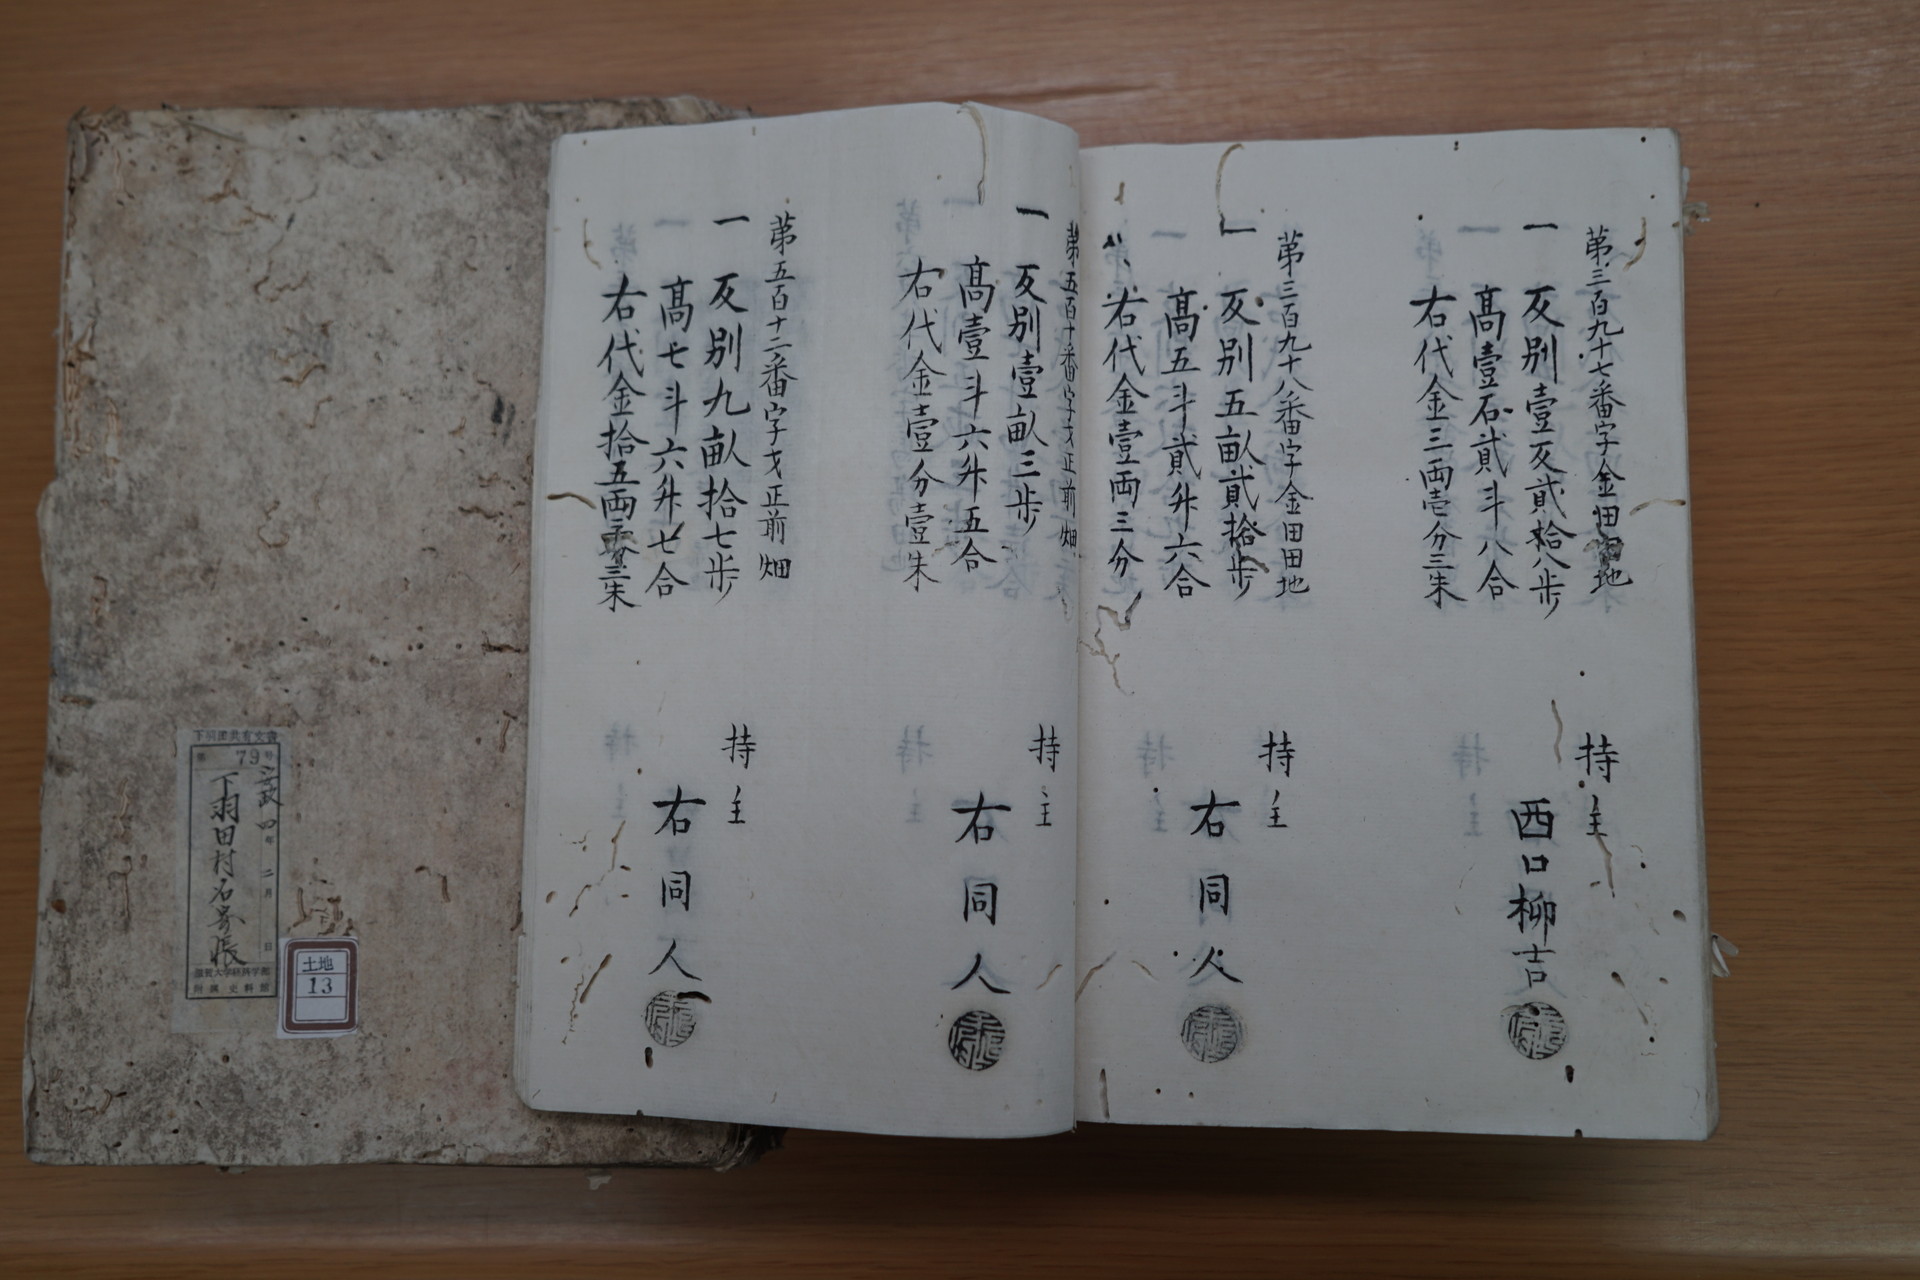 第三百九十七番字金田地
一 反別壹反貳拾八歩
髙壹石貳斗八合
右代金三両壱分三朱
持主
西口柳吉
第三百九十八番字金田田地
一 反別五畝貳拾歩
髙五斗貳升六合
右代金壹両三分
持主
右同人
第五百十番字才正前畑
一 反別壹畝三歩
髙壹斗六升五合
右代金壹分壹朱
持主
右同人
第五百十二番字才正前畑
一 反別九畝拾七歩
髙七斗六升七合
右代金拾五両三朱
持主
右同人
下羽田共有文書
第79号
政四年二月日
下羽田村名寄帳
滋賀大学経済学部
附属史料館
土地
13